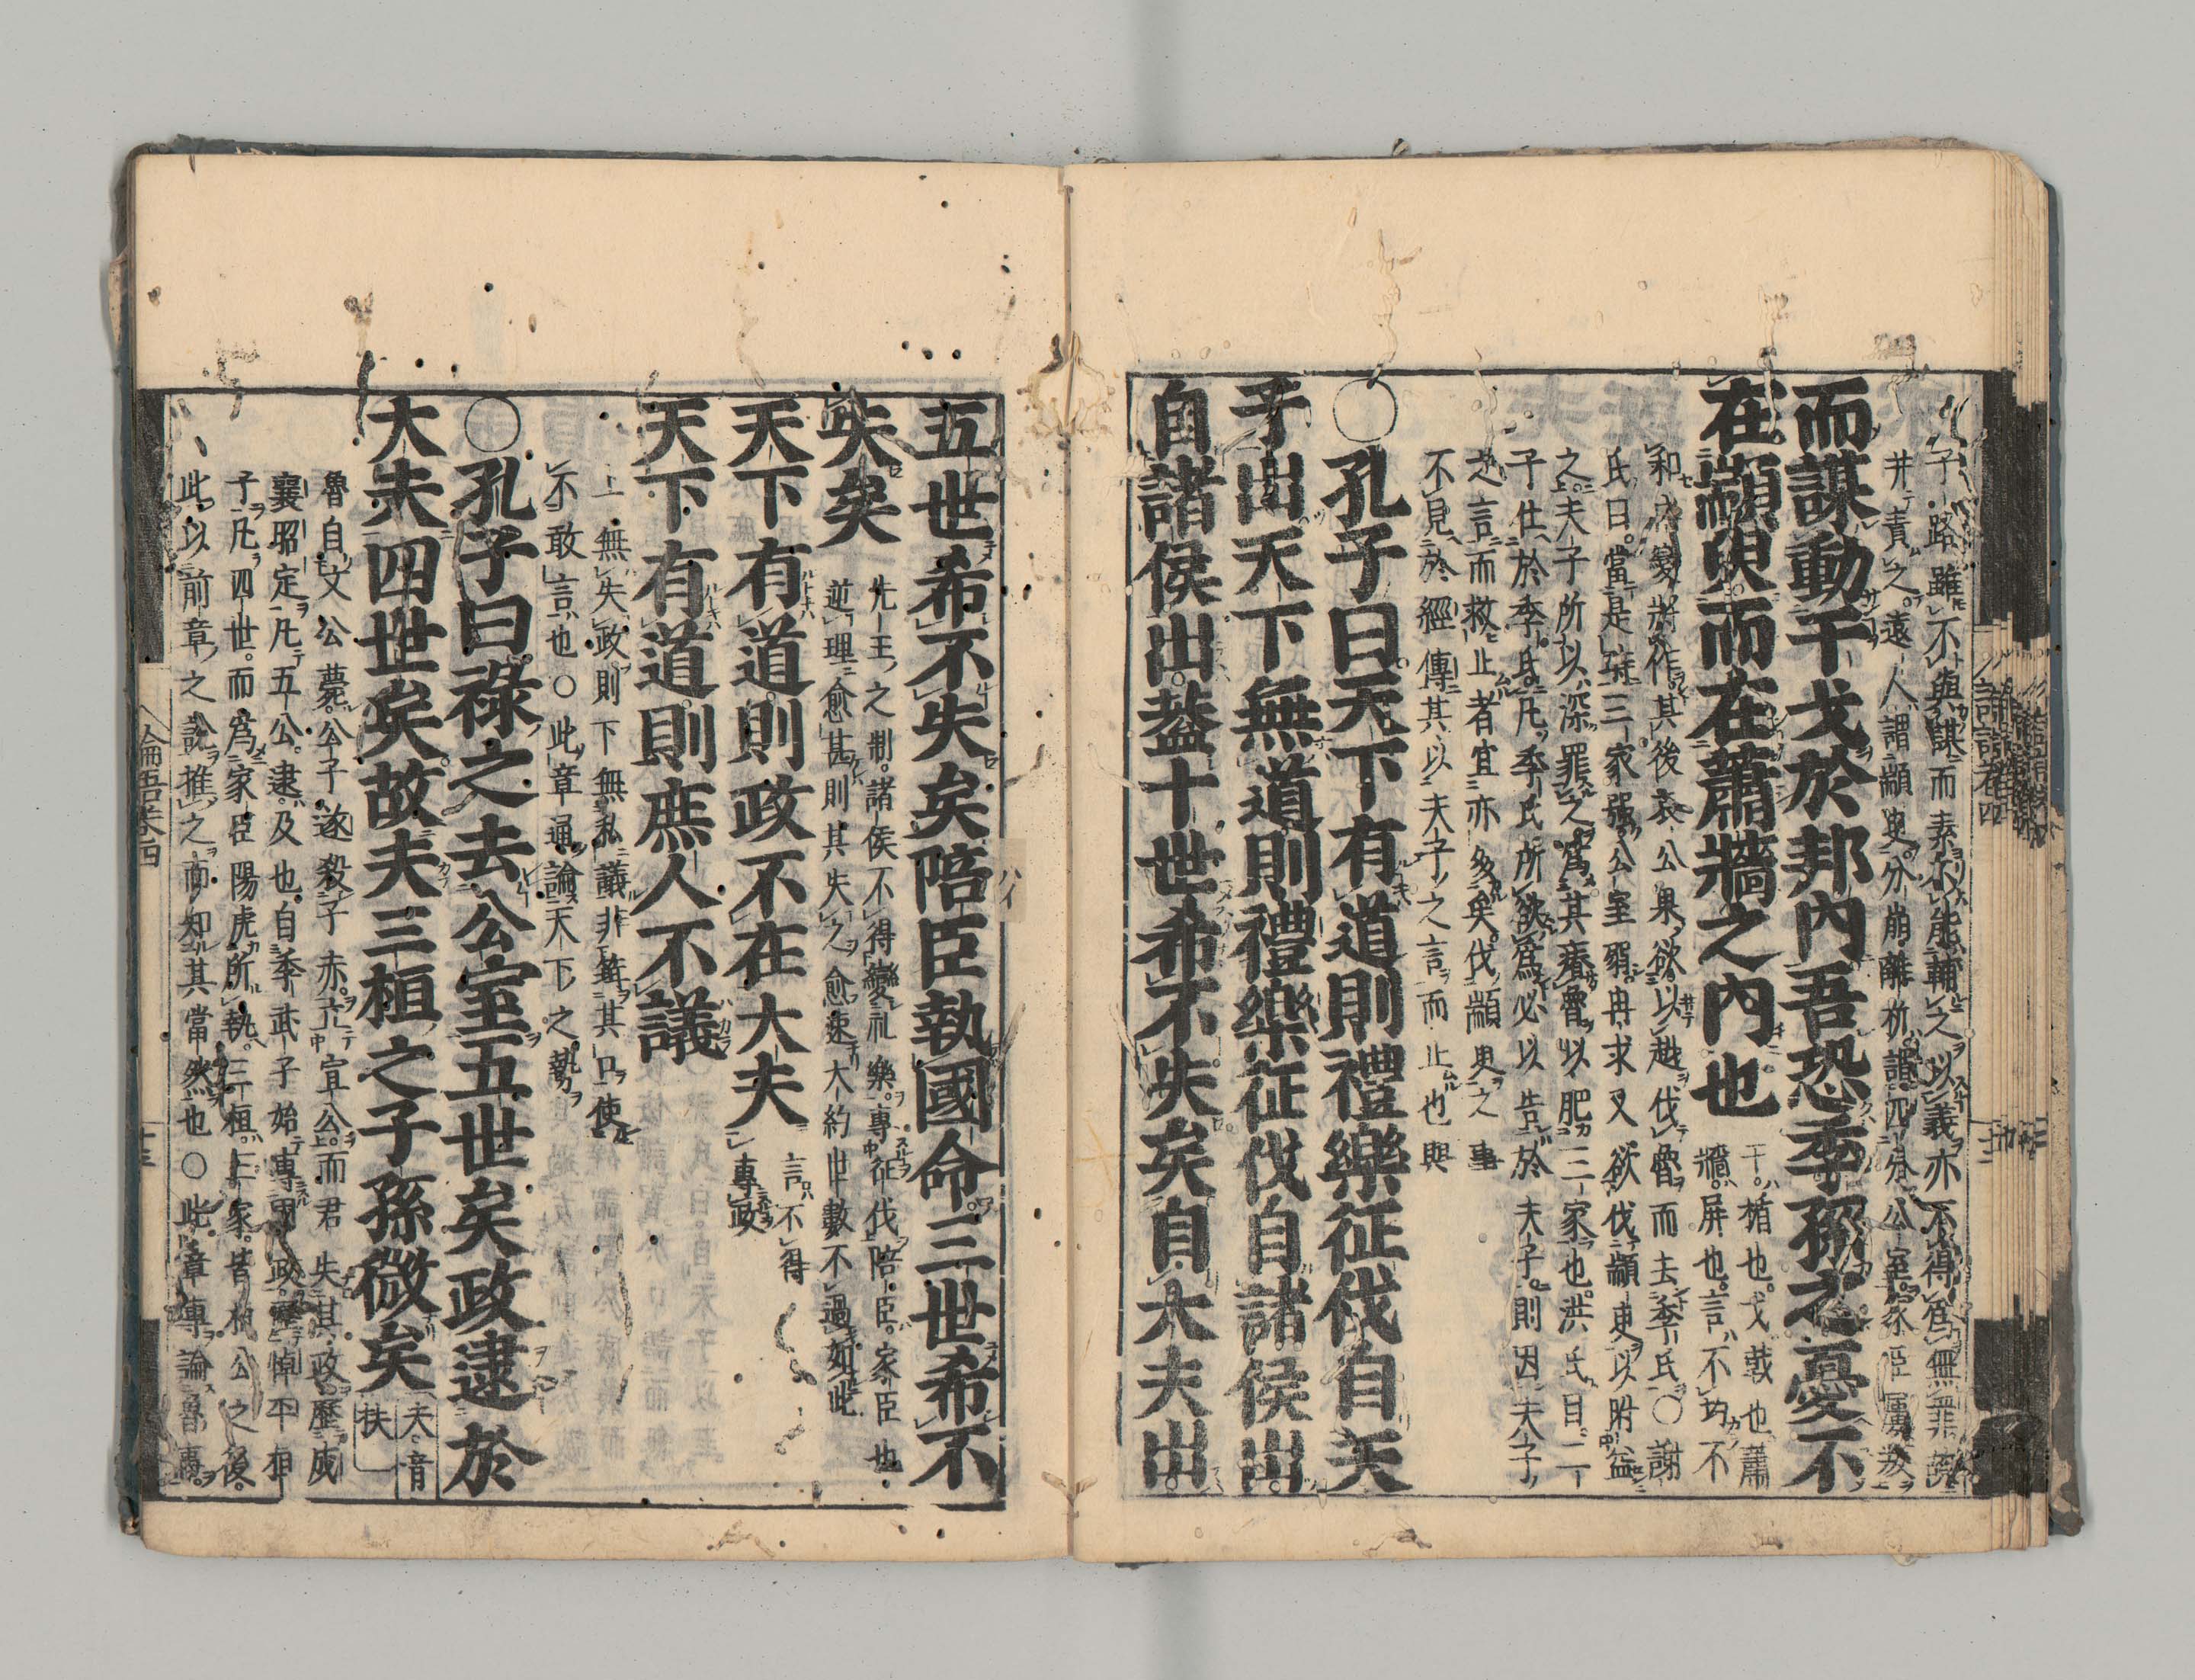 子路雖不與謀而素不能輔之以義亦不得爲無罪故
并責之遠人謂顓臾分崩離析謂四分公室家臣屢叛
而謀動干戈於邦內吾恐季孫之憂不
在顓臾而在蕭牆之內也
干楯也戈戟也蕭
牆屏也言不均不
和內變將作其後哀公果欲以越伐魯而去季氏〇謝
氏曰當是時三家强公室弱冉求又欲伐顓臾以附益
之夫子所以深罪之爲其瘠魯以肥三家也洪氏曰二
子仕於季氏凡季氏所欲爲必以告於夫子則因夫子
之言而救止者宜亦多矣伐顓臾之事
不見於經傳其以夫子之言而止也與
〇孔子曰天下有道則禮樂征伐自天
子出天下無道則禮樂征伐自諸侯出
自諸侯出蓋十世希不失矣自大夫出
五世希不失矣陪臣執國命三世希不
失矣
先王之制諸侯不得變礼樂專征伐陪臣家臣也
逆理愈甚則其失之愈速大約世數不過如此
天下有道則政不在大夫
言不得
專政
天下有道則庶人不議
上無失政則下無私議非箝其口使
不敢言也〇此章通論天下之勢
〇孔子曰祿之去公室五世矣政逮於
大夫四世矣故夫三桓之子孫微矣
夫音
扶
魯自文公薨公子遂殺子赤立宣公而君失其政歷成
襄昭定凡五公逮及也自季武子始專國政歷悼平桓
子凡四世而爲家臣陽虎所執三桓三家皆桓公之後
此以前章之說推之而知其當然也〇此章專論魯事
論語卷四